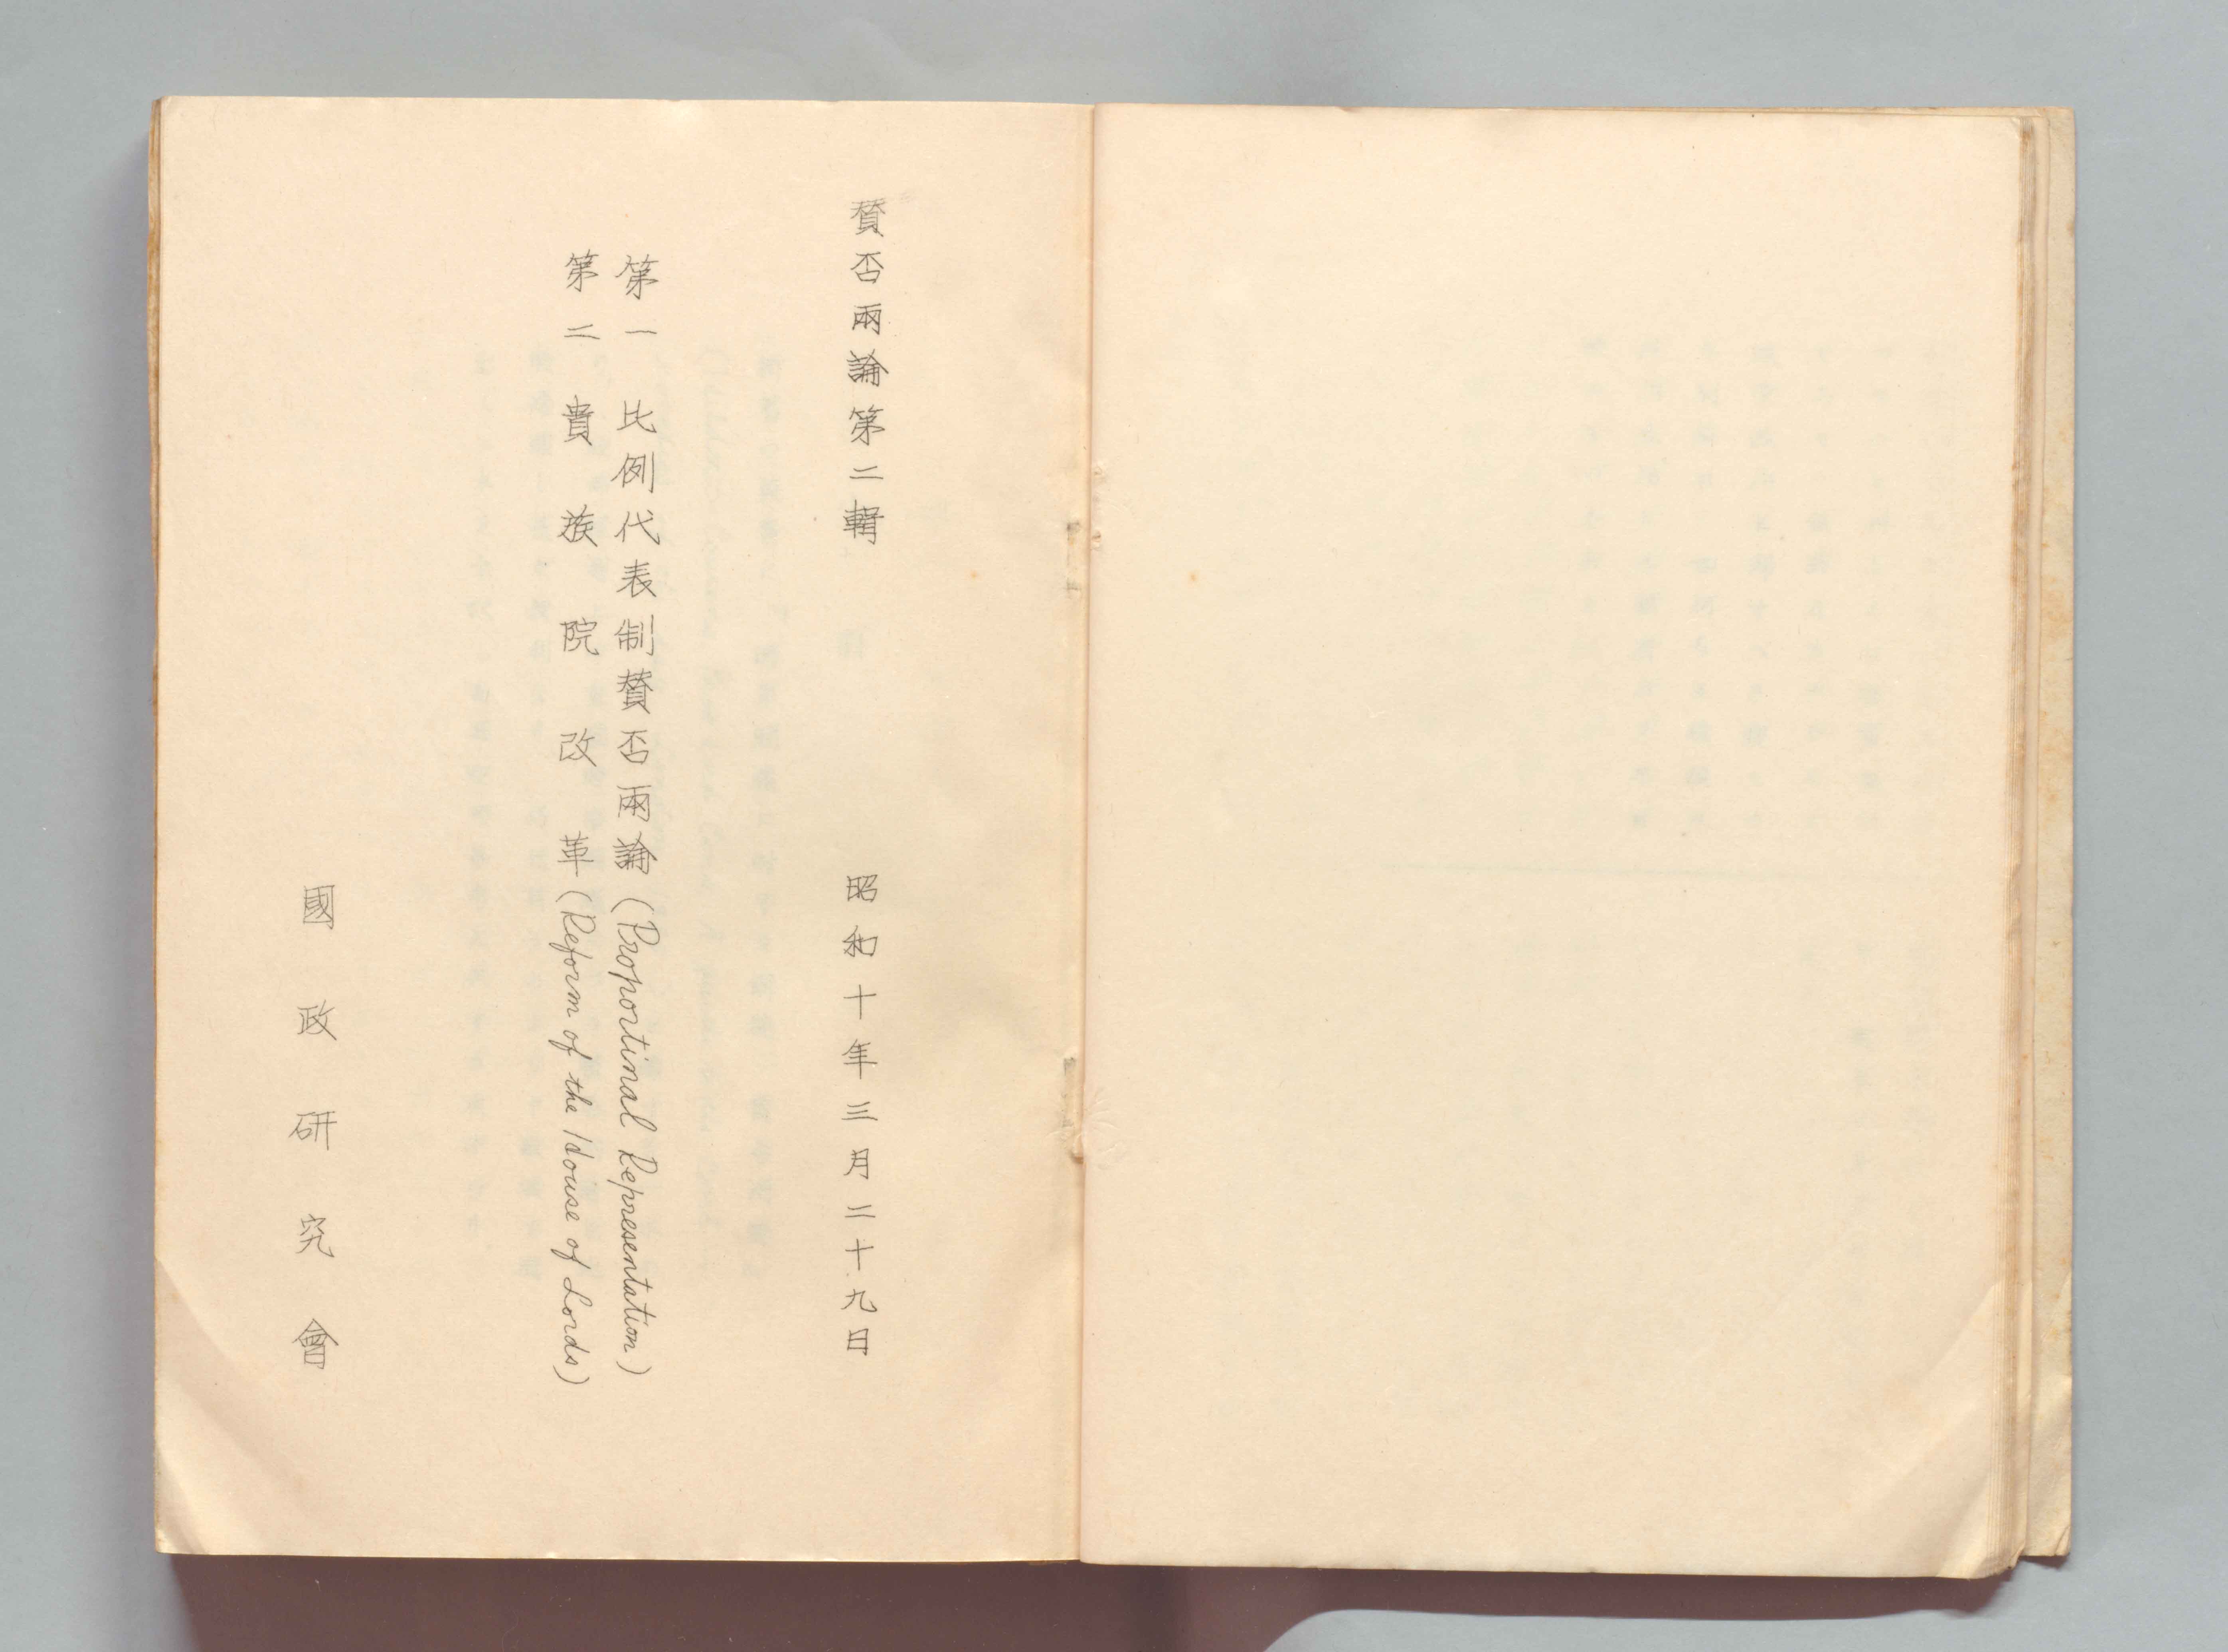 賛否兩論第二輯　昭和十年三月二十九日
第一　比例代表制賛否兩論(Proportinal Representation)
第二　貴族院改革(Reform of the House of Lords)
國政研究會